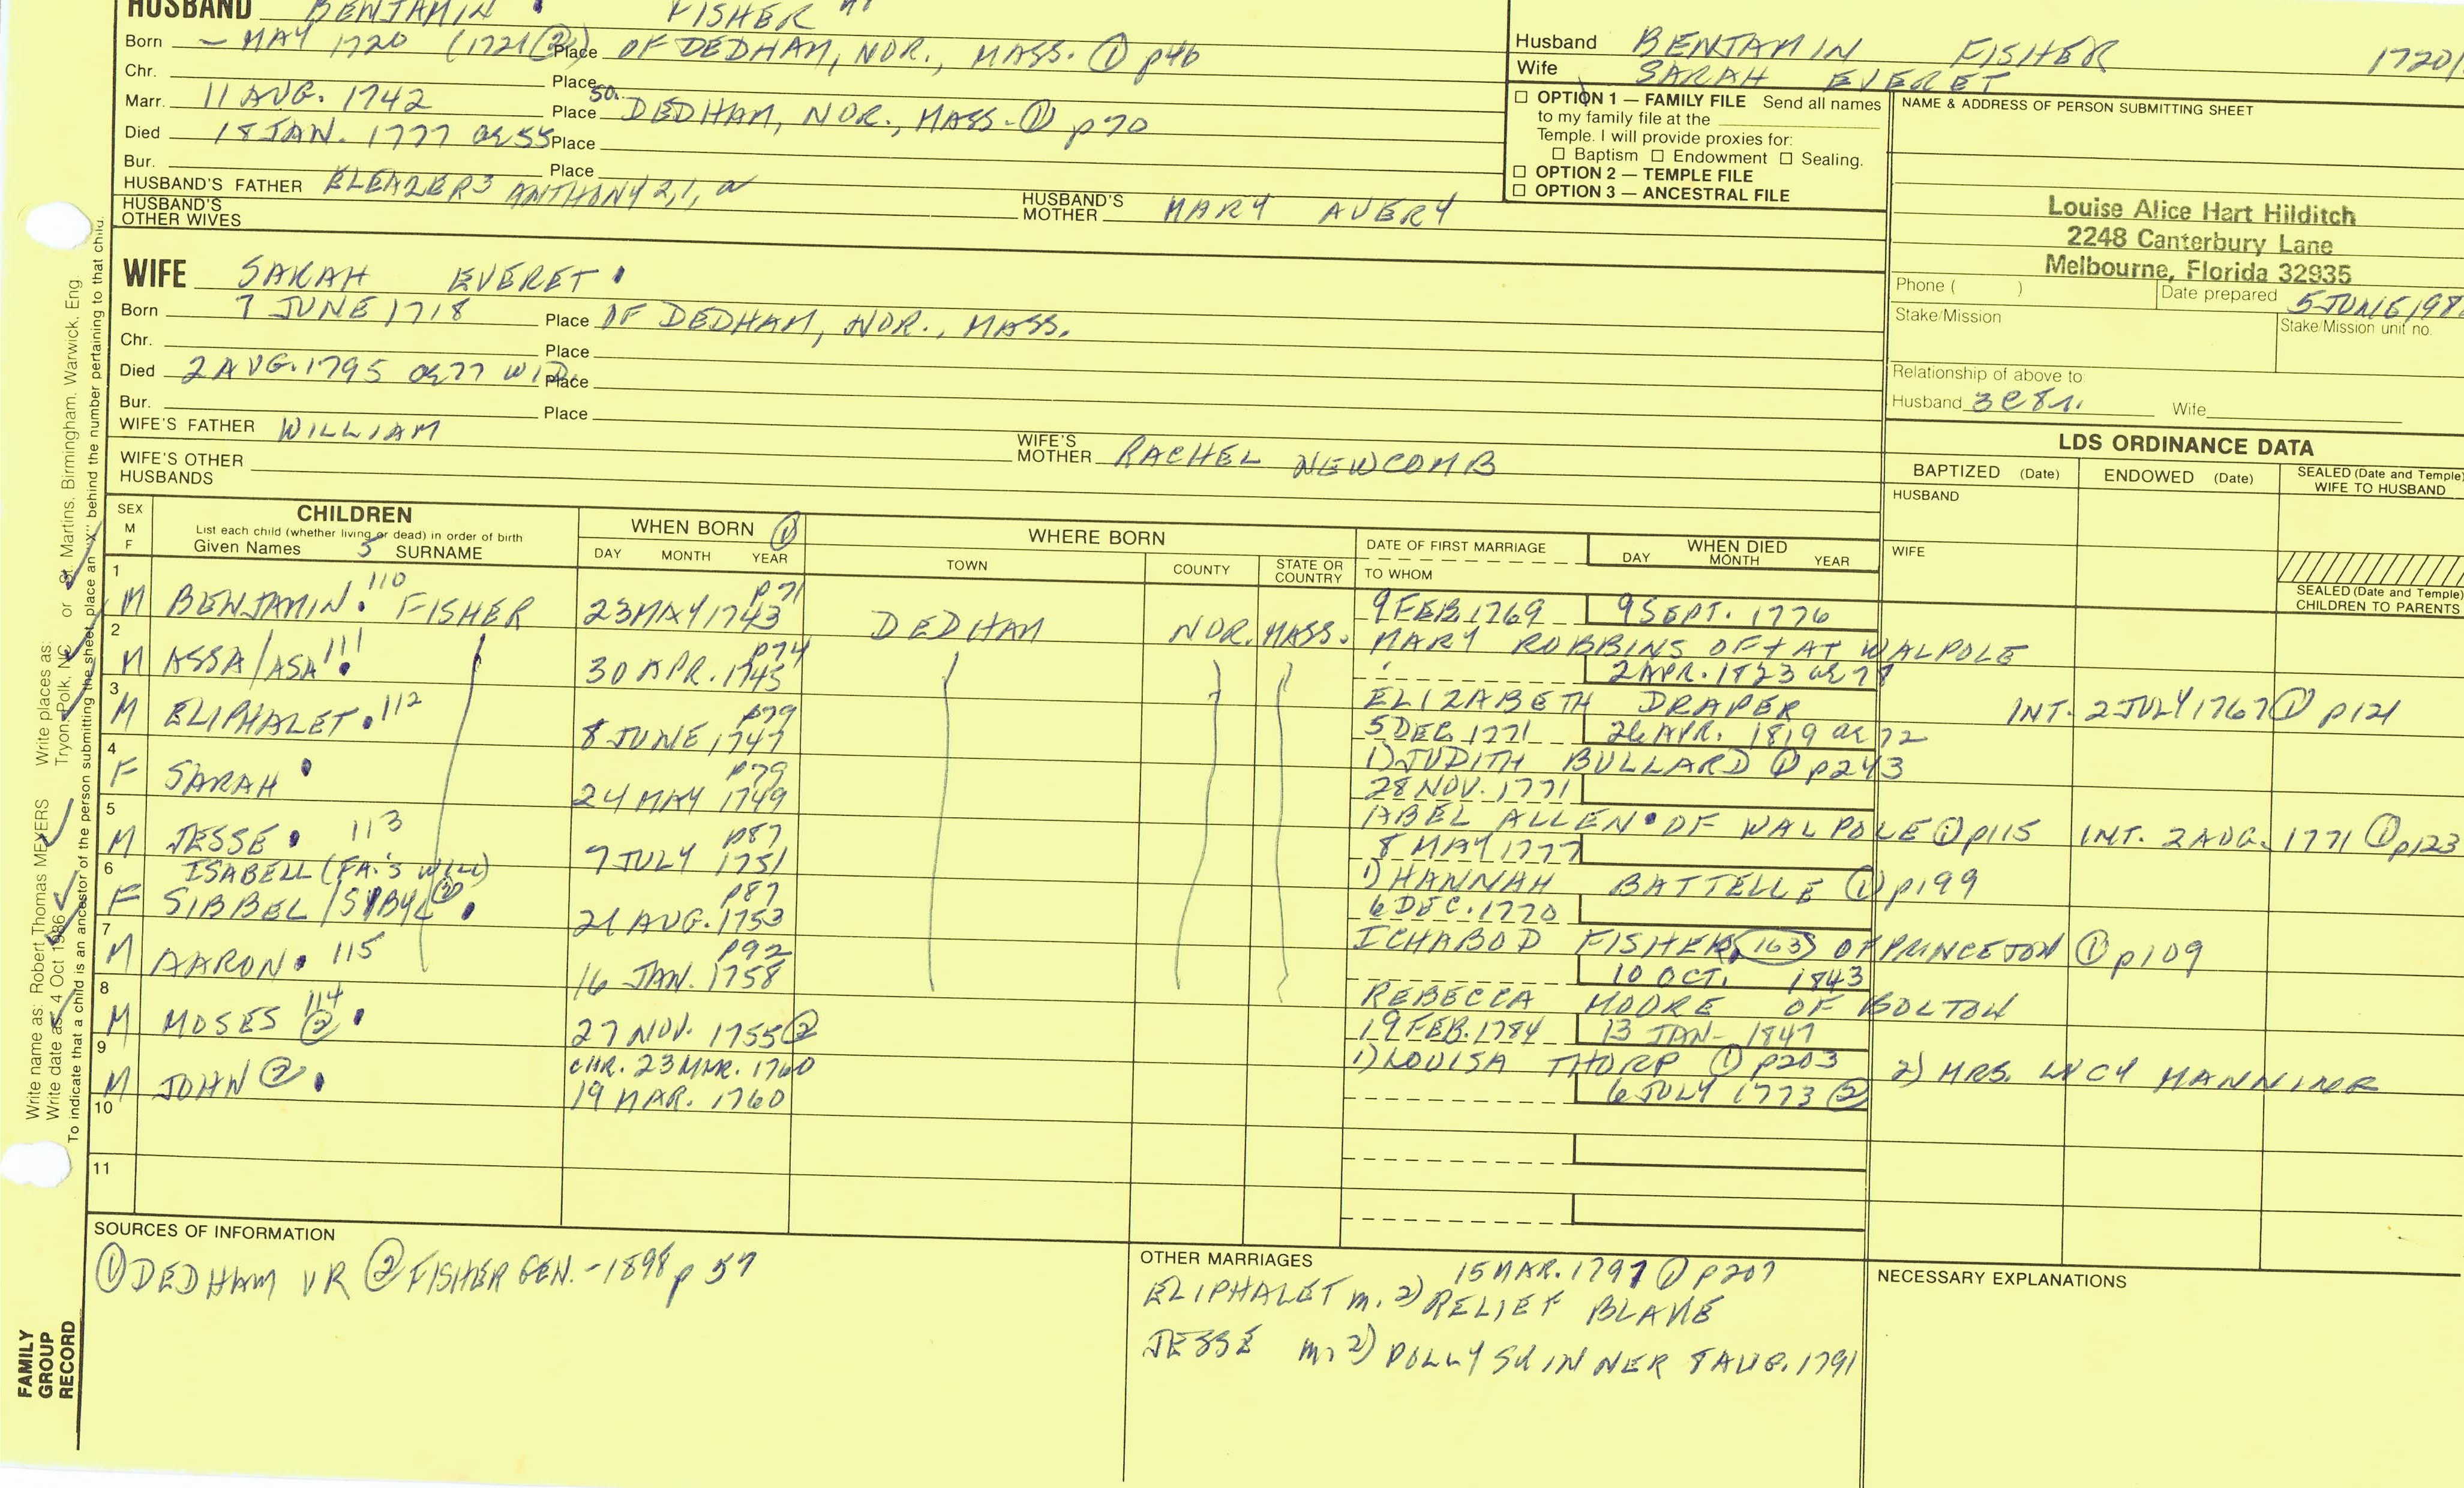 HUSBAND BENJAMIN FISHER
Born — MAY 1720 (1721(2)) Place OF DEDHAM, NOR., MASS. ① p46
Chr. Place
Marr. 11 AUG. 1742 Place SO. DEDHAM, NOR., MASS. ① p70
Died 18 JAN. 1777 ae 55 Place
Bur. Place
HUSBAND'S FATHER ELEAZER3 ANTHONY 2,1,
HUSBAND'S MOTHER MARY AVERY
HUSBAND'S OTHER WIVES
WIFE SARAH EVERET
Born 7 JUNE 1718 Place OF DEDHAM, NOR., MASS.
Chr. Place
Died 2 AUG. 1795 ae 77 WID. Place
Bur. Place
WIFE'S FATHER WILLIAM
WIFE'S MOTHER RACHEL NEWCOMB
WIFE'S OTHER HUSBANDS
Husband BENJAMIN FISHER 1720/
Wife SARAH EVERET
☐ OPTION 1 — FAMILY FILE Send all names
to my family file at the
Temple. I will provide proxies for:
☐ Baptism ☐ Endowment ☐ Sealing.
☐ OPTION 2 — TEMPLE FILE
☐ OPTION 3 — ANCESTRAL FILE
NAME & ADDRESS OF PERSON SUBMITTING SHEET
Louise Alice Hart Hilditch
2248 Canterbury Lane
Melbourne, Florida 32935
Phone ( )
Date prepared 5 JUNE 198
Stake/Mission
Stake/Mission unit no.
Relationship of above to:
Husband 3C8r. Wife
LDS ORDINANCE DATA
BAPTIZED (Date) ENDOWED (Date) SEALED (Date and Temple) WIFE TO HUSBAND
HUSBAND
WIFE
SEALED (Date and Temple) CHILDREN TO PARENTS
SEX M F
CHILDREN
List each child (whether living or dead) in order of birth
Given Names 5 SURNAME
WHEN BORN ①
DAY MONTH YEAR
WHERE BORN
TOWN COUNTY STATE OR COUNTRY
DATE OF FIRST MARRIAGE
TO WHOM
WHEN DIED
DAY MONTH YEAR
1 M BENJAMIN 110 FISHER p71 23 MAY 1743 DEDHAM NOR. MASS. 9 FEB. 1769 9 SEPT. 1776
MARY ROBBINS OF + AT WALPOLE
2 M ASSA/ASA 111 p74 30 APR. 1745 2 APR. 1823 ae 78
ELIZABETH DRAPER INT. 2 JULY 1767 ① p121
3 M ELIPHALET 112 p79 8 JUNE 1747 5 DEC. 1771 26 APR. 1819 ae 72
1) JUDITH BULLARD ① p243
4 F SARAH p79 24 MAY 1749 28 NOV. 1771
ABEL ALLEN OF WALPOLE ① p115 INT. 2 AUG. 1771 ① p123
5 M JESSE 113 p87 7 JULY 1751 8 MAY 1777
1) HANNAH BATTELLE ① p199
6 F ISABELL (FA.'S WILL)
SIBBEL/SYBYL ② p87 21 AUG. 1753 6 DEC. 1770
ICHABOD FISHER, 163 OF PRINCETON ① p109
7 M AARON 115 p92 16 JAN. 1758 10 OCT. 1843
REBECCA MOORE OF BOLTON
8 M MOSES 114 ② 27 NOV. 1755 ② 19 FEB. 1784 13 JAN— 1847
1) LOUISA THORP ① p203 2) MRS. LUCY MANNING
9 M JOHN ② CHR. 23 MAR. 1760
19 MAR. 1760 6 JULY 1773 ②
10
11
SOURCES OF INFORMATION
① DEDHAM VR ② FISHER GEN. - 1898 p 57
OTHER MARRIAGES
15 MAR. 1797 ① p207
ELIPHALET m. 2) RELIEF BLAKE
JESSE m. 2) POLLY SKINNER 8 AUG. 1791
NECESSARY EXPLANATIONS
Write name as: Robert Thomas MEYERS Write places as: Tryon, Polk, NC or St. Martins, Birmingham, Warwick, Eng.
Write date as: 4 Oct 1986
To indicate that a child is an ancestor of the person submitting the sheet, place an "X" behind the number pertaining to that child.
FAMILY
GROUP
RECORD